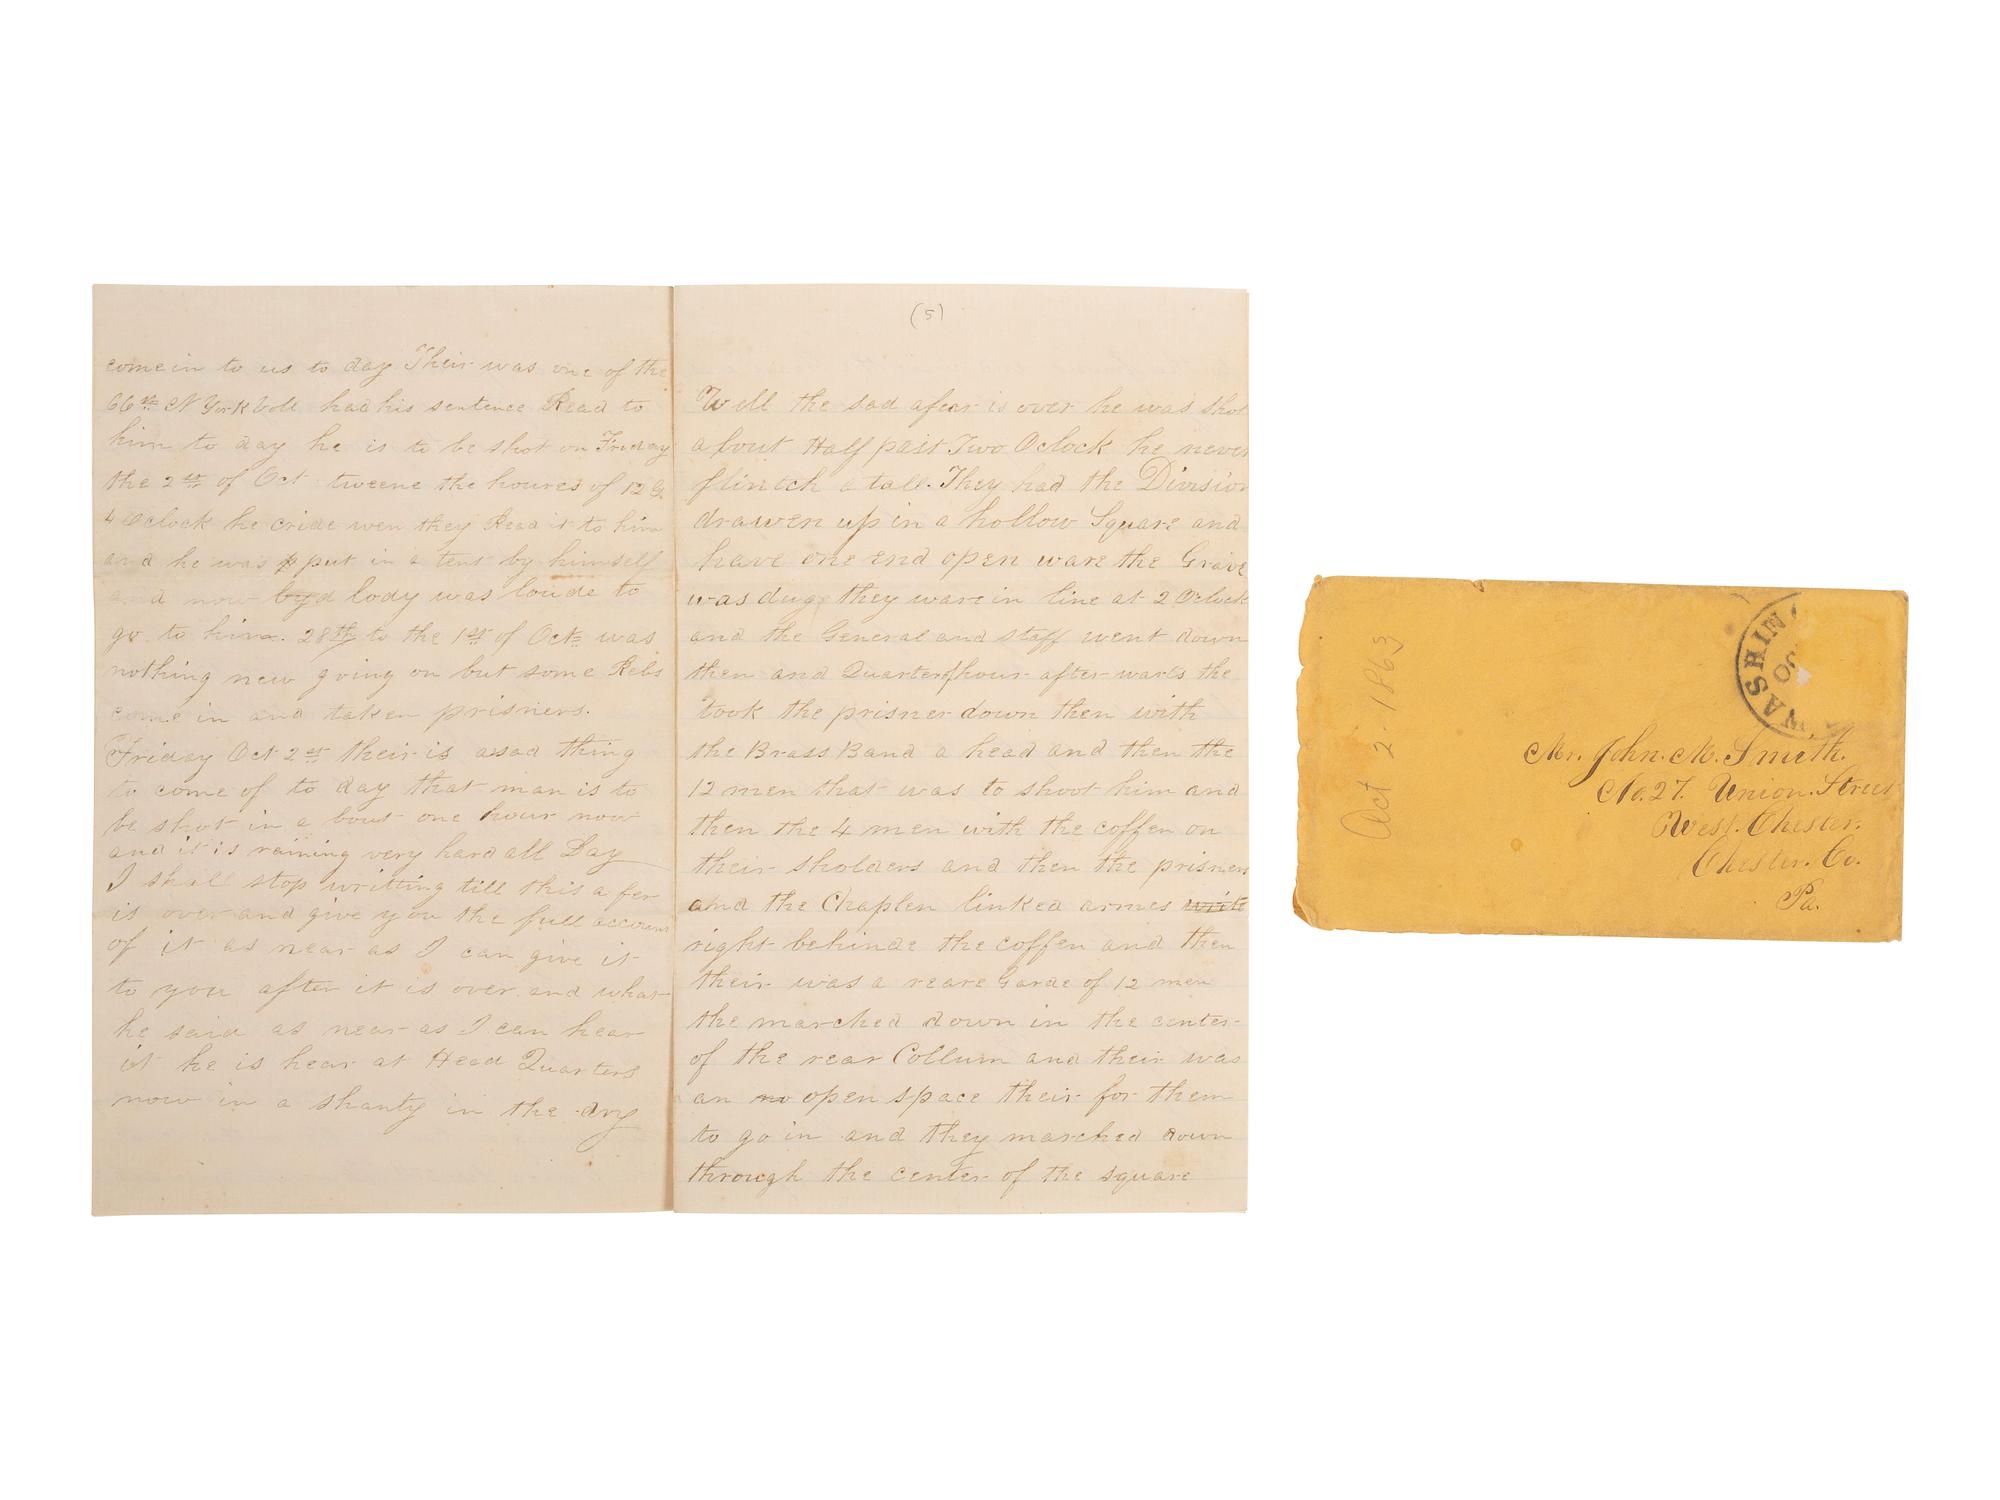 come in to us to day Their was one of the
66th N York Voll had his sentence Read to
him to day he is to be shot on Friday
the 2st of Oct tweene the houres of 12 &
4 Oclock he cride wen they Read it to him
and he was p put in a tent by himself
and now byd lody was loude to
go to him. 28th to the 1st of Oct was
nothing new going on but some Rebs
come in and taken prisners.
Friday Oct 2st their is a sad thing
to come of to day that man is to
be shot in a bout one hour now
and it is raining very hard all Day
I shall stop writting till this a fer
is over and give you the full account
of it as near as I can give it
to you after it is over and what
he said as near as I can hear
it he is hear at Head Quarters
now in a shanty in the dry
(5)
Well the sad afear is over he was shot
about Half past Two Oclock he never
flintch a tall. They had the Division
drawen up in a hollow Square and
have one end open ware the Grave
was dug they ware in line at 2 Oclock
and the General and staff went down
then and Quarter of hour after warts the
took the prisner down then with
the Brass Band a head and then the
12 men that was to shoot him and
then the 4 men with the coffen on
their sholders and then the prisners
and the Chaplen linked armes write
right behinde the coffen and then
their was a reare Garde of 12 men
the marched down in the center
of the rear Collum and their was
an no open space their for them
to go in and they marched down
through the center of the square
Oct 2. 1863
WASHIN
OC
Mr. John. M. Smith.
No. 27. Union. Street
West. Chester.
Chester. Co.
Pa.